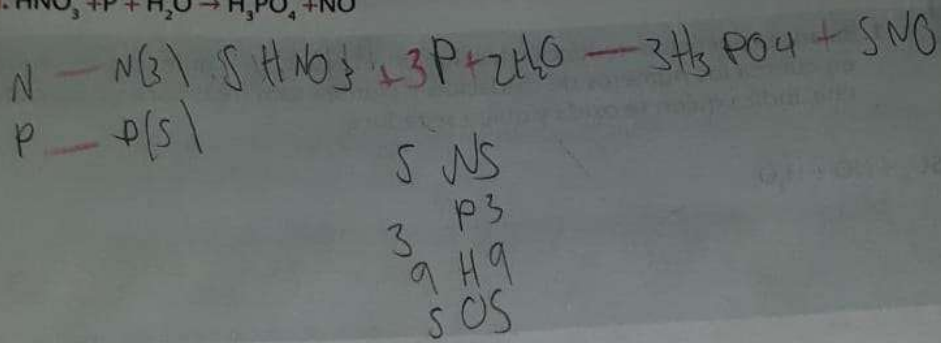 . HNO₃ +P + H₂O → H₃PO₄ +NO
N — N(3) 5 HNO3 +3P+2H₂O — 3H₃ PO4 + 5NO
P — P(5)
5 N5
3 P3
9 H9
5 O5